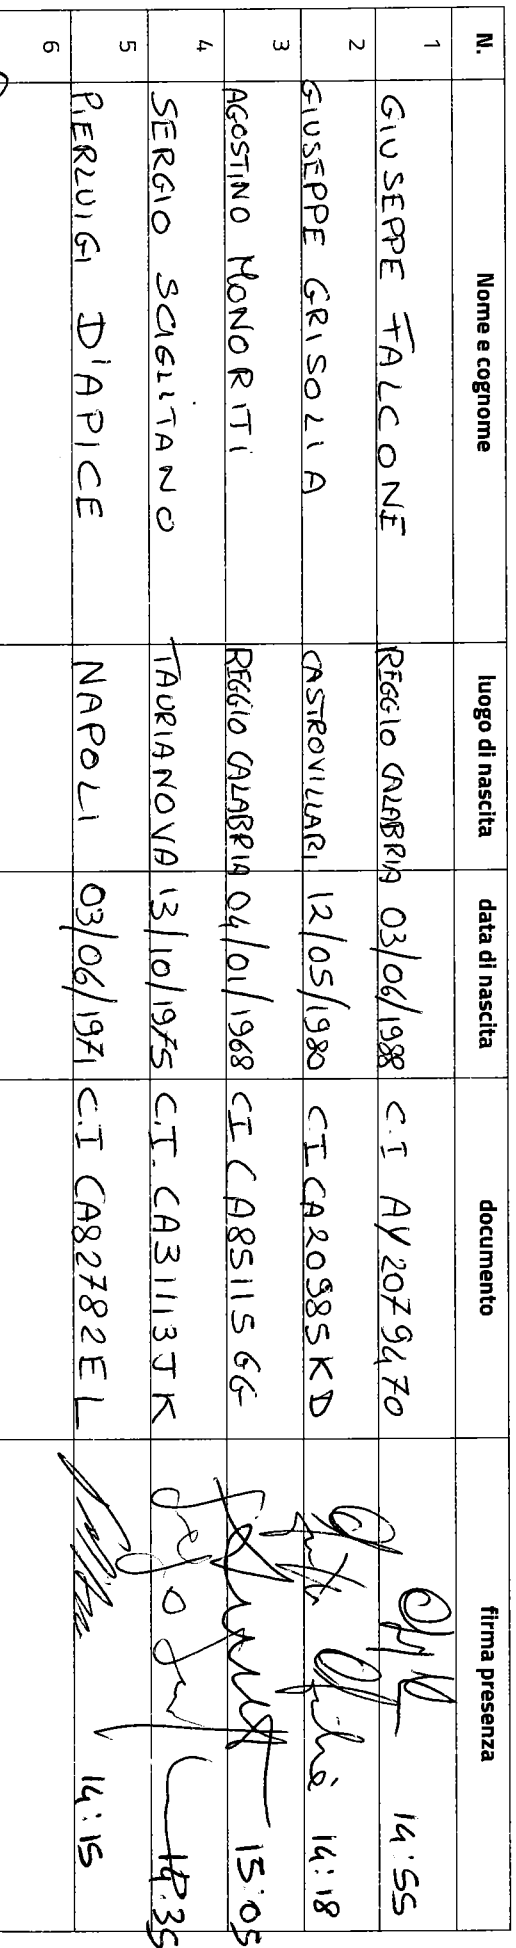 N. Nome e cognome luogo di nascita data di nascita documento firma presenza
1 GIUSEPPE FALCONE REGGIO CALABRIA 03/06/1988 C.I AY2079470 14:55
2 GIUSEPPE GRISOLIA CASTROVILLARI 12/05/1980 C.I CA20985KD 14:18
3 AGOSTINO MONORITI REGGIO CALABRIA 04/01/1968 CI CA85115GG 15:05
4 SERGIO SCIGLITANO TAURIANOVA 13/10/1975 C.I. CA31113JK
5 PIERLUIGI D'APICE NAPOLI 03/06/1971 C.I CA82782EL 14:15
6